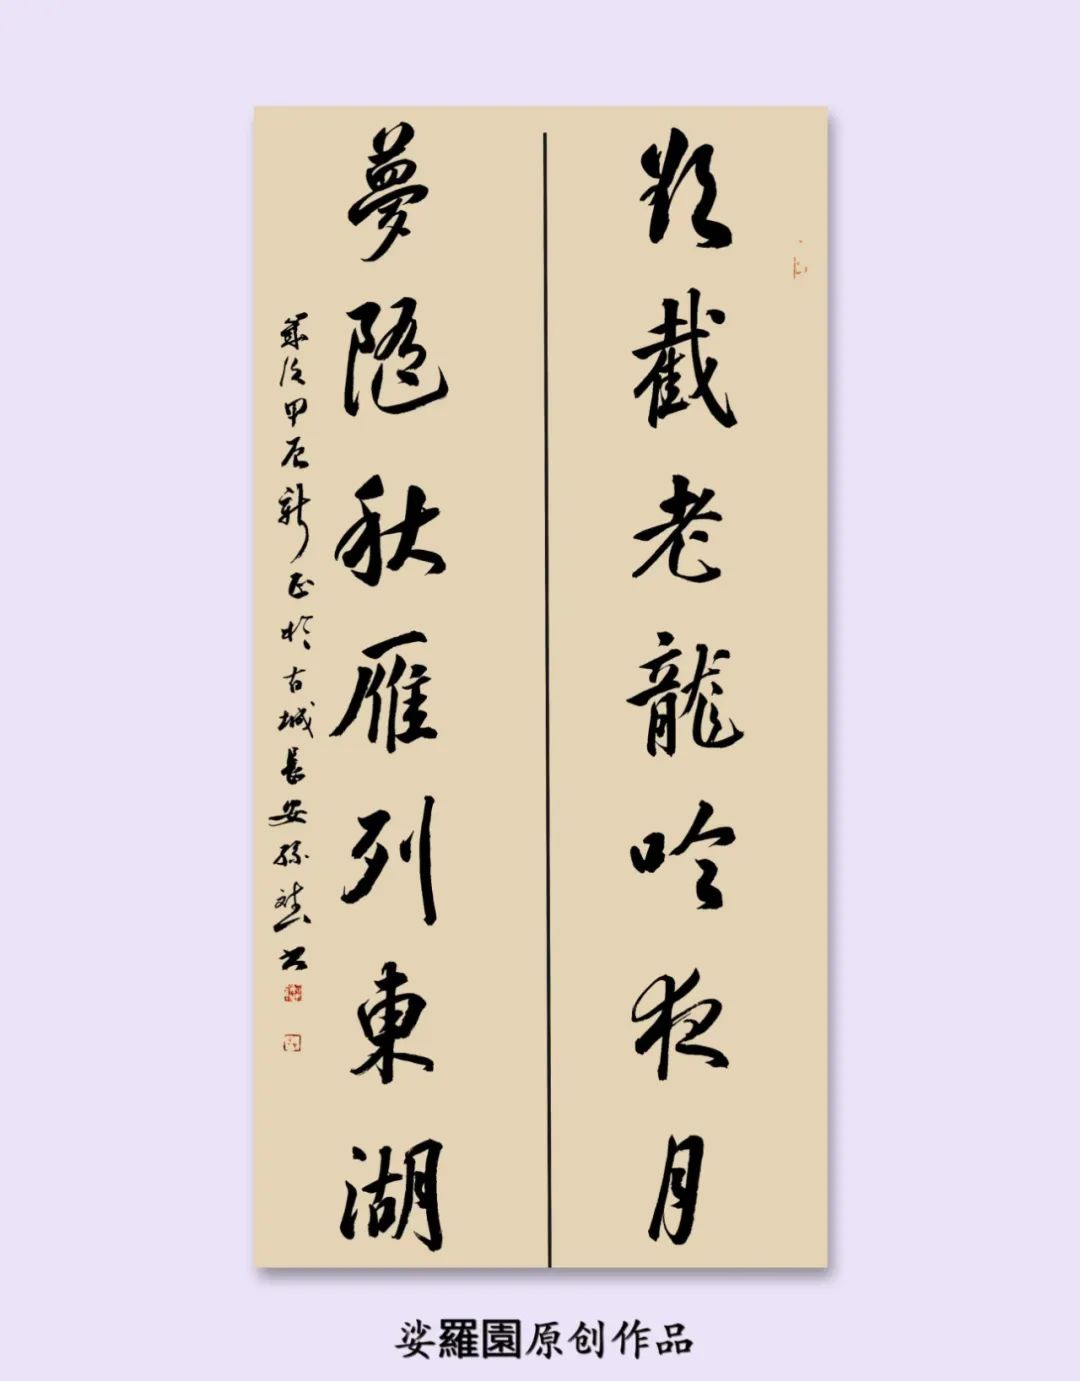 欲截老龍吟夜月
夢隨秋雁到東湖
歲次甲辰新正於古城長安孫書
娑羅園原创作品